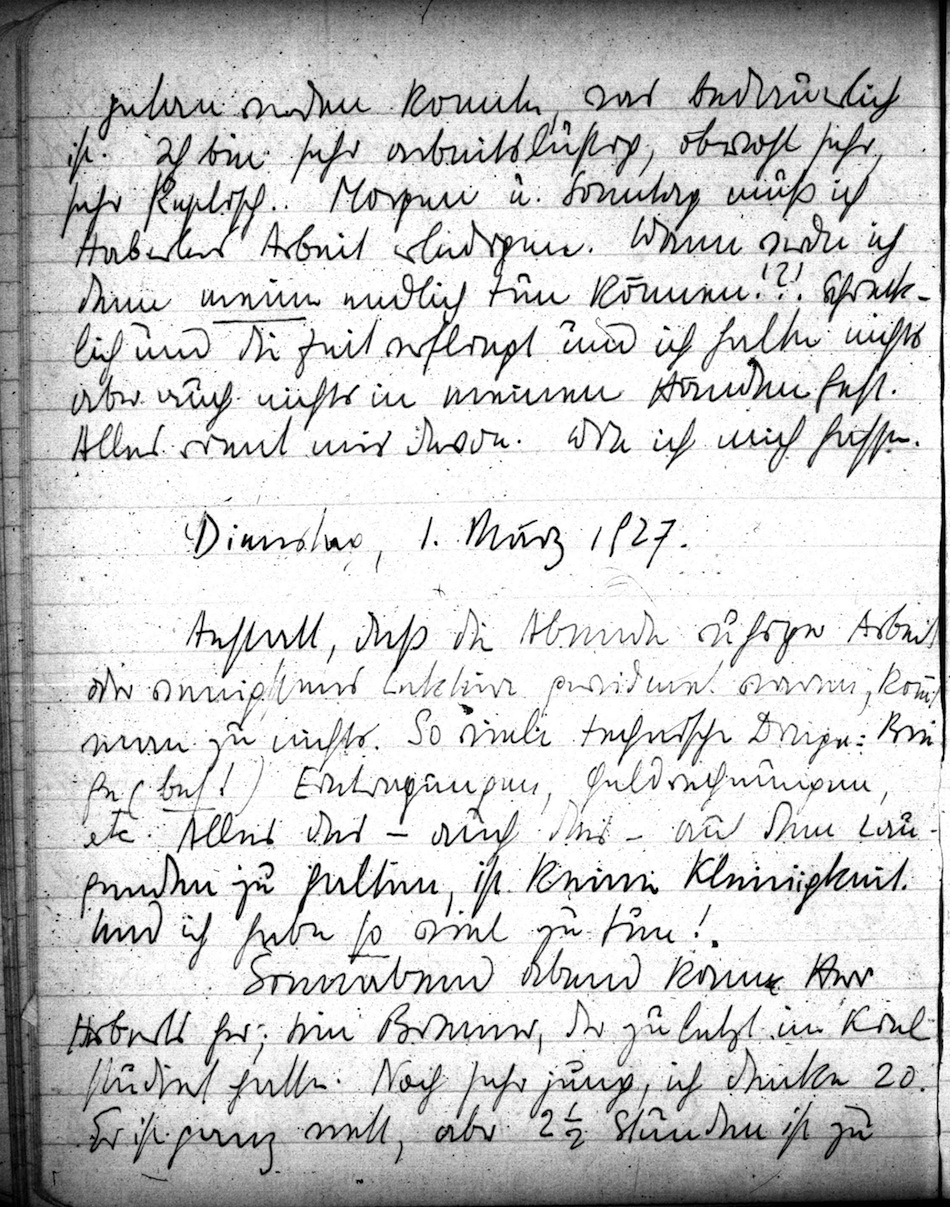 getan werden konnte, was bedauerlich
ist. Ich bin sehr arbeitslustig, obwohl sehr,
sehr skeptisch.. Morgen u. Sonntag muß ich
Arbeit erledigen. Wann werde ich
denn meine endlich tun können!?! Schreck-
lich und die Zeit verfliegt und ich halte nichts
aber auch nichts in meinen Händen fest.
Alles rennt mir davon. Wie ich mich hasse.
Dienstag, 1. März 1927.
Anstatt, daß die Abende ruhiger Arbeit
oder wenigstens Lektüre gewidmet wären, kommt
man zu nichts. So viele technische Dinge: Brie-
fe (bes!) Eintragungen, Geldrechnungen,
etc. Alles das – auch das – auf dem Lau-
fenden zu halten, ist keine Kleinigkeit.
Und ich habe so viel zu tun!
Sonnabend abend kam Herr
her; ein Bremer, der zuletzt in Kiel
studiert hatte. Noch sehr jung, ich denke 20.
Er ist ganz nett, aber 2½ Stunden ist zu